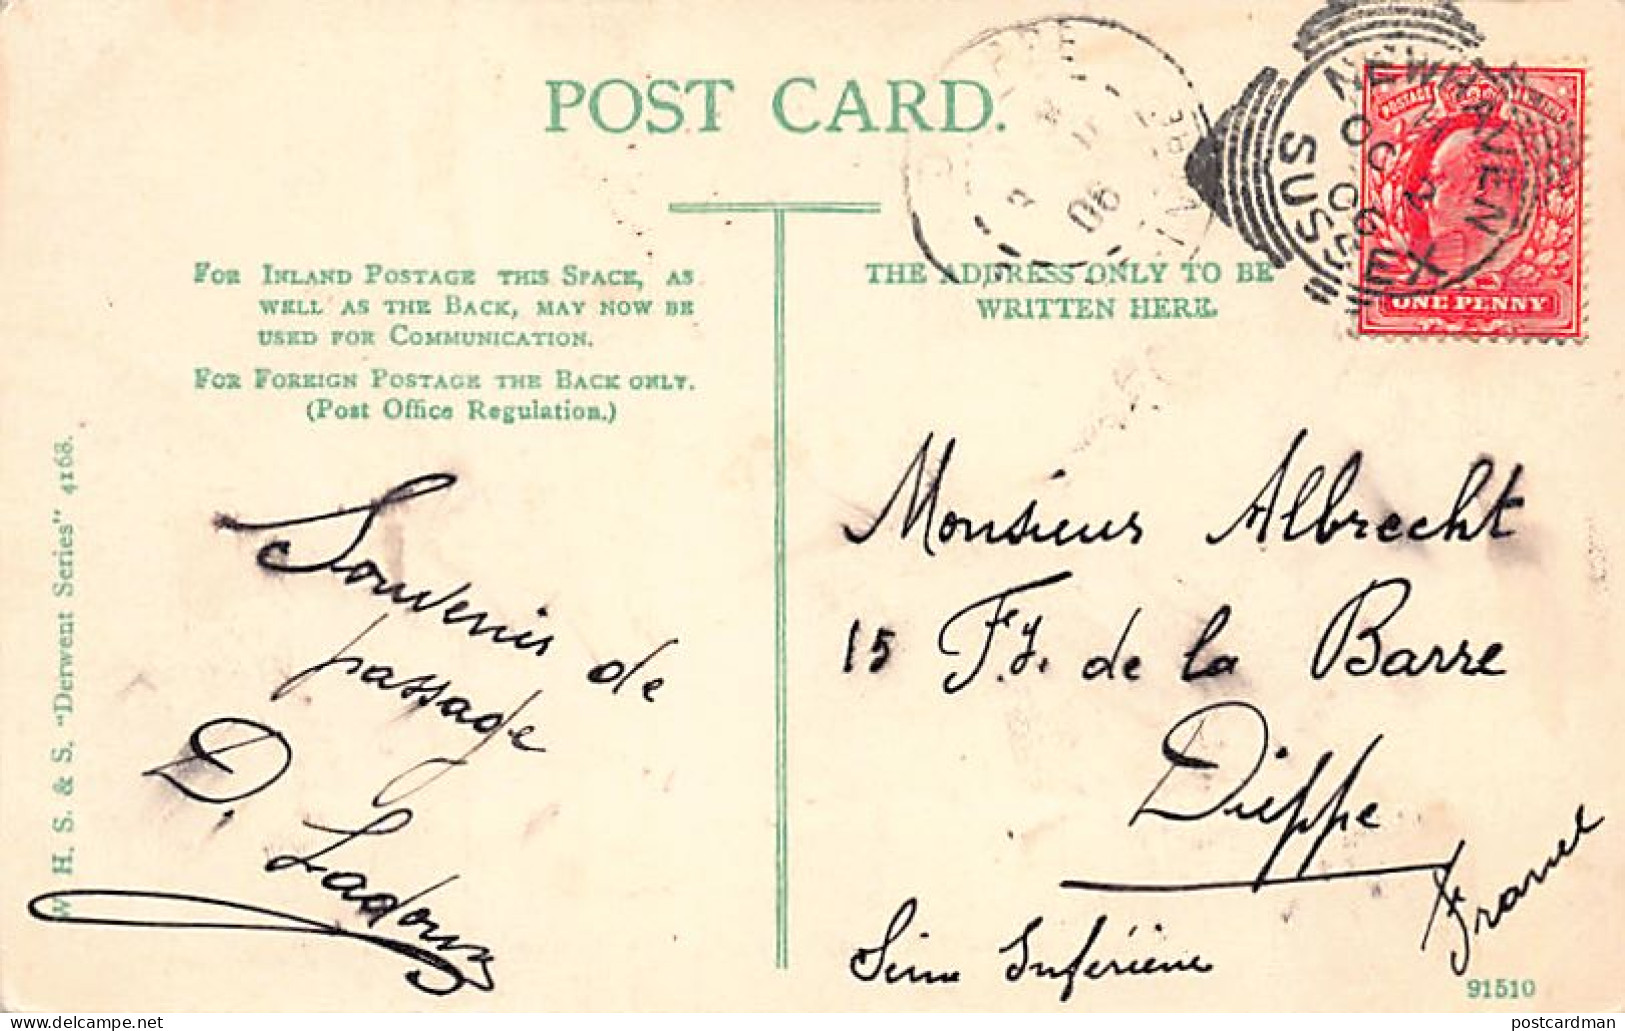 POST CARD.
FOR INLAND POSTAGE THIS SPACE, AS
WELL AS THE BACK, MAY NOW BE
USED FOR COMMUNICATION.
FOR FOREIGN POSTAGE THE BACK ONLY.
(Post Office Regulation.)
THE ADDRESS ONLY TO BE
WRITTEN HERE.
NEWHAVEN
OC 2
06
SUSSEX
POSTAGE
ONE PENNY
06
W. H. S. & S. "Derwent Series" 4168.
Souvenir de
passage
D. Ladoux
Monsieur Albrecht
15 Fg. de la Barre
Dieppe
France
Seine Inférieure
91510
postcardman